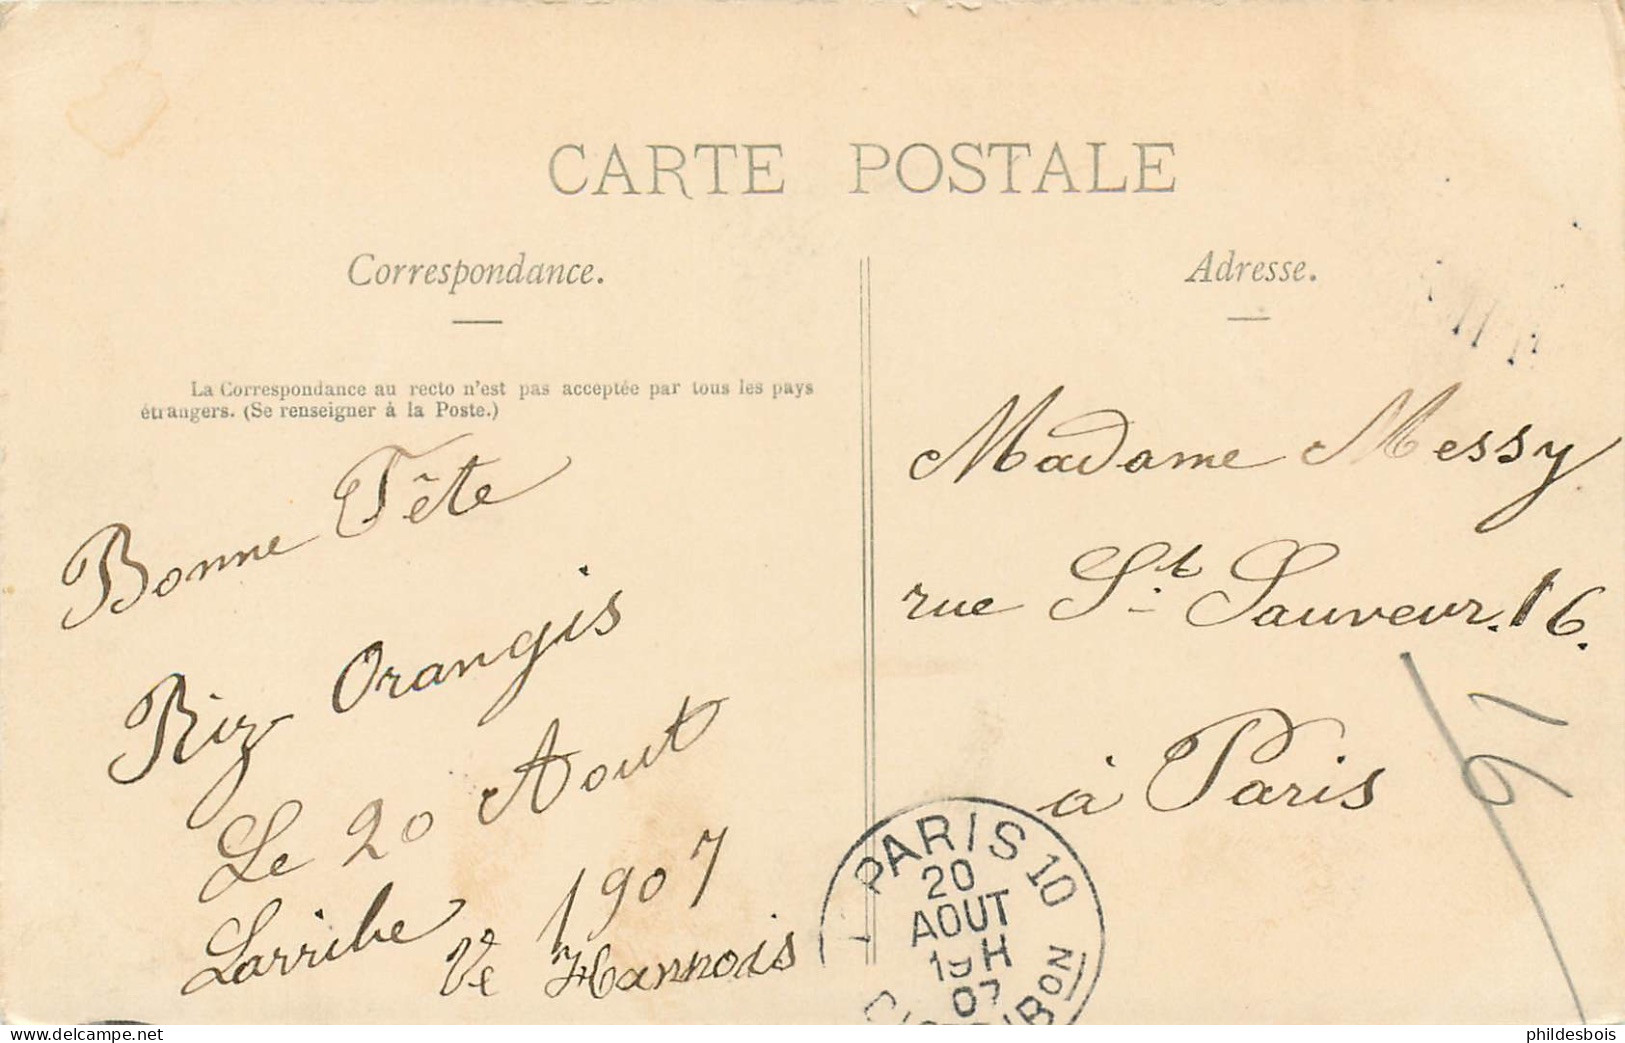 CARTE POSTALE
Correspondance.
La Correspondance au recto n'est pas acceptée par tous les pays
étrangers. (Se renseigner à la Poste.)
Bonne Fête
Riz Orangis
Le 20 Aout
1907
Larribe Ve Hannois
Adresse.
Madame Messy
rue St. Sauveur. 16.
à Paris
91
PARIS 10
20
AOUT
19H
07
DISTRIBON
phildesbois